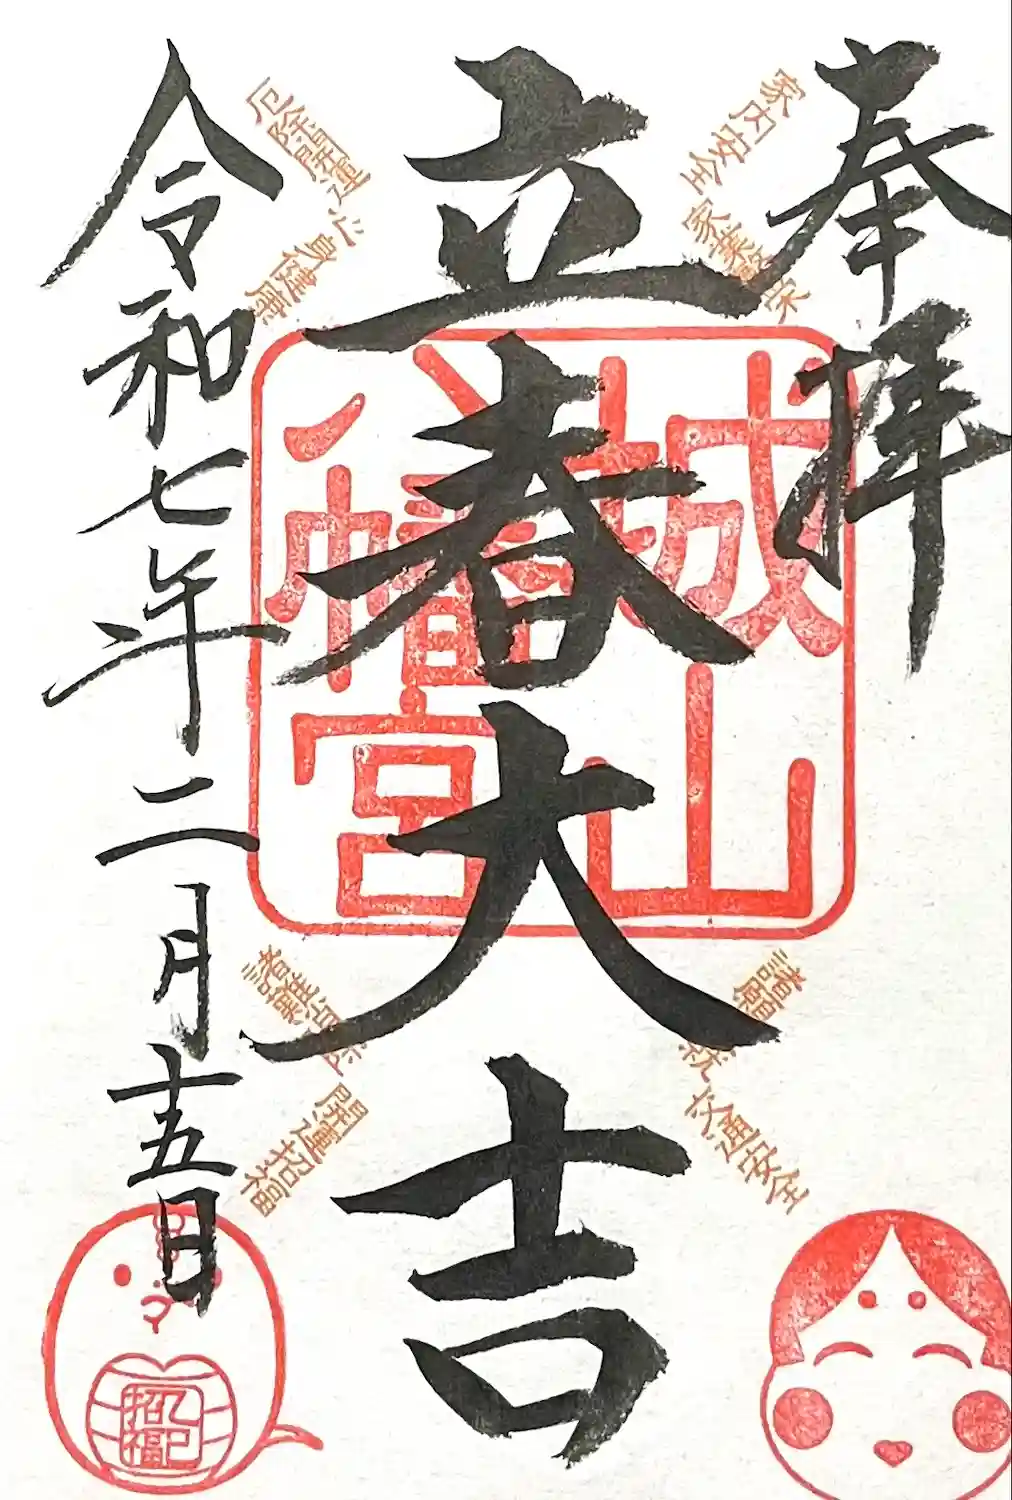 奉拝
立春大吉
令和七年二月十五日
城山
八幡宮
家内安全
家業繁栄
厄除開運
心身健康
諸難消除
開運招福
諸願成就
交通安全
乙巳
招福